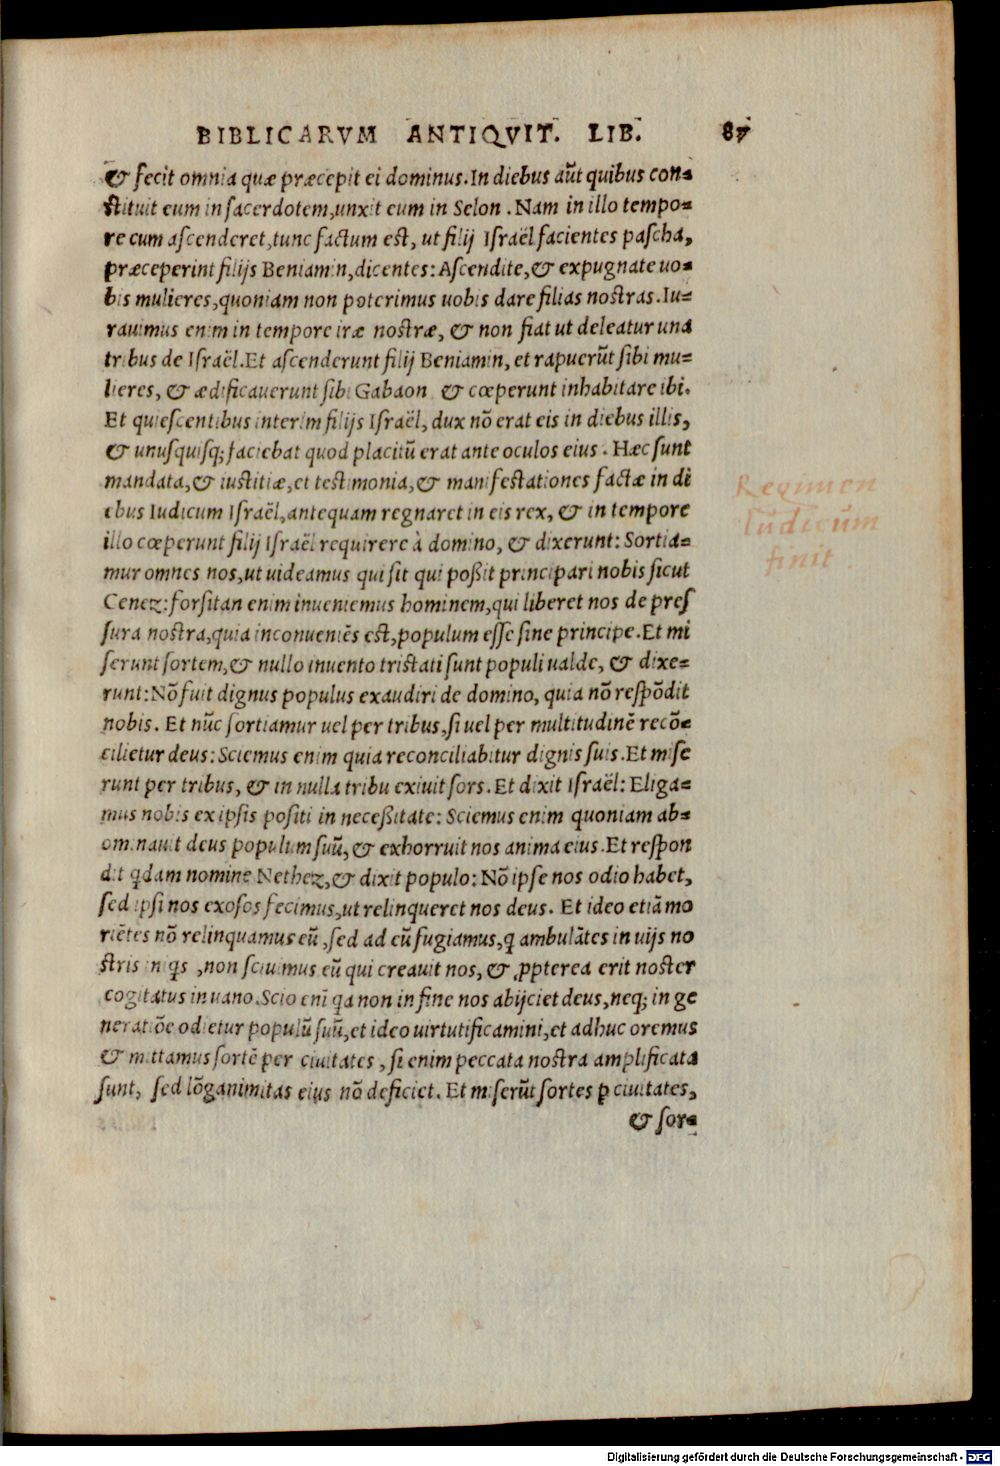 BIBLICARVM ANTIQVIT. LIB. 87
& fecit omnia quæ præcepit ei dominus. In diebus aũt quibus con-
stituit eum in sacerdotem, unxit eum in Selon. Nam in illo tempo-
re cum ascenderet, tunc factum est, ut filij Israël facientes pascha,
præceperint filijs Beniamin, dicentes: Ascendite, & expugnate uo-
bis mulieres, quoniam non poterimus uobis dare filias nostras. Iu-
rauimus enim in tempore iræ nostræ, & non fiat ut deleatur una
tribus de Israël. Et ascenderunt filij Beniamin, et rapuerũt sibi mu-
lieres, & ædificauerunt sibi Gabaon & cœperunt inhabitare ibi.
Et quiescentibus interim filijs Israël, dux nõ erat eis in diebus illis,
& unusquisq; faciebat quod placitũ erat ante oculos eius. Hæc sunt
mandata, & iustitiæ, et testimonia, & manifestationes factæ in di
ebus Iudicum Israël, antequam regnaret in eis rex, & in tempore
illo cœperunt filij Israël requirere à domino, & dixerunt: Sortia-
mur omnes nos, ut uideamus qui sit qui poßit principari nobis sicut
Cenez: forsitan enim inueniemus hominem, qui liberet nos de pres
sura nostra, quia inconueniẽs est, populum esse sine principe. Et mi
serunt sortem, & nullo inuento tristati sunt populi ualde, & dixe-
runt: Nõ fuit dignus populus exaudiri de domino, quia nõ respõdit
nobis. Et nũc sortiamur uel per tribus, si uel per multitudinẽ recõ-
cilietur deus: Sciemus enim quia reconciliabitur dignis suis. Et mise
runt per tribus, & in nulla tribu exiuit sors. Et dixit Israël: Eliga-
mus nobis ex ipsis positi in neceßitate: Sciemus enim quoniam ab-
ominauit deus populum suũ, & exhorruit nos anima eius. Et respon
dit q̃dam nomine Nethez, & dixit populo: Nõ ipse nos odio habet,
sed ipsi nos exosos fecimus, ut relinqueret nos deus. Et ideo etiã mo
riẽtes nõ relinquamus eũ, sed ad eũ fugiamus, q ambulãtes in uijs no
stris iniqs, non sciuimus eũ qui creauit nos, & ꝓpterea erit noster
cogitatus in uano. Scio enĩ qa non in fine nos abijciet deus, neq; in ge
neratiõe odietur populũ suũ, et ideo uirtutificamini, et adhuc oremus
& mittamus sortẽ per ciuitates, si enim peccata nostra amplificata
sunt, sed lõganimitas eius nõ deficiet. Et miserũt sortes ꝑ ciuitates,
& sor-
Regimen
Iudicum
finit
Digitalisierung gefördert durch die Deutsche Forschungsgemeinschaft - DFG